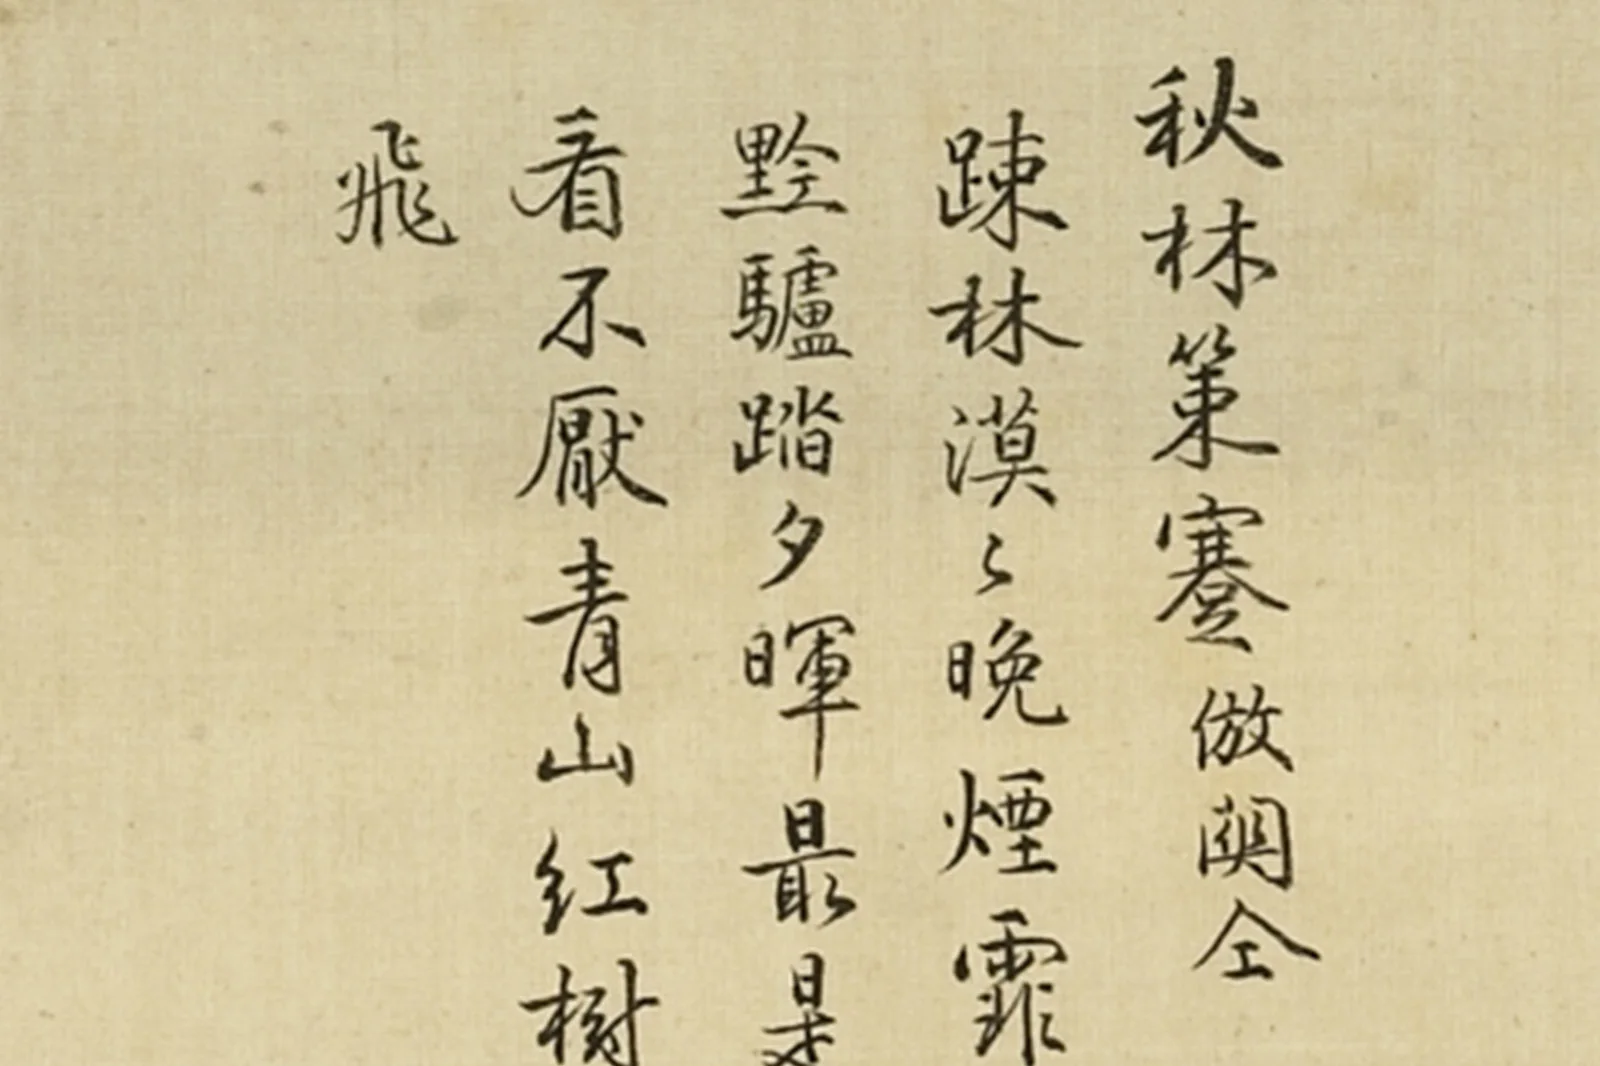 秋林策蹇倣關仝
踈林漠〻晚煙霏
黔驢踏夕暉最是
看不厭青山紅樹
飛